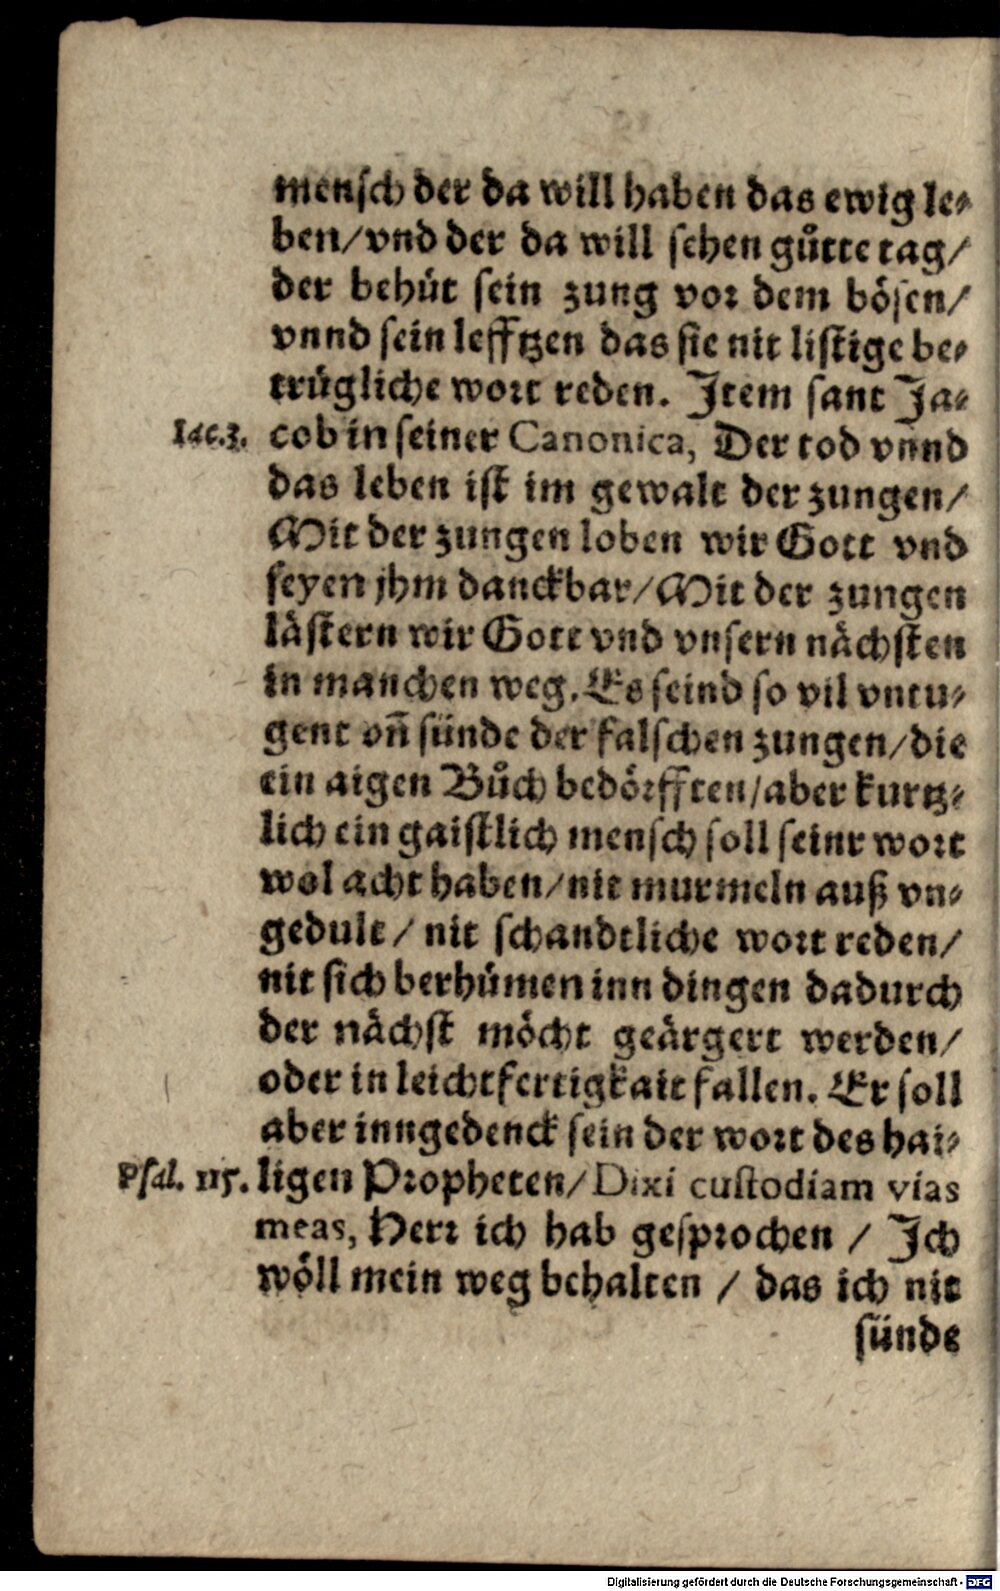 mensch der da will haben das ewig le-
ben/vnd der da will sehen gůtte tag/
der behüt sein zung vor dem bösen/
vnnd sein lefftzen das sie nit listige be-
trügliche wort reden. Item sant Ja-
Iac.3. cob in seiner Canonica, Der tod vnnd
das leben ist im gewalt der zungen/
Mit der zungen loben wir Gott vnd
seyen jhm danckbar/Mit der zungen
lästern wir Gott vnd vnsern nächsten
in manchen weg. Es seind so vil vntu-
gent vñ sünde der falschen zungen/die
ein aigen Bůch bedörfften/aber kurtz-
lich ein gaistlich mensch soll seinr wort
wol acht haben/nit murmeln auß vn-
gedult/ nit schandtliche wort reden/
nit sich berhümen inn dingen dadurch
der nächst möcht geärgert werden/
oder in leichtfertigkait fallen. Er soll
aber inngedenck sein der wort des hai-
Psal. 115. ligen Propheten/Dixi custodiam vias
meas, Herr ich hab gesprochen / Ich
wöll mein weg behalten / das ich nit
sünde
Digitalisierung gefördert durch die Deutsche Forschungsgemeinschaft - DFG